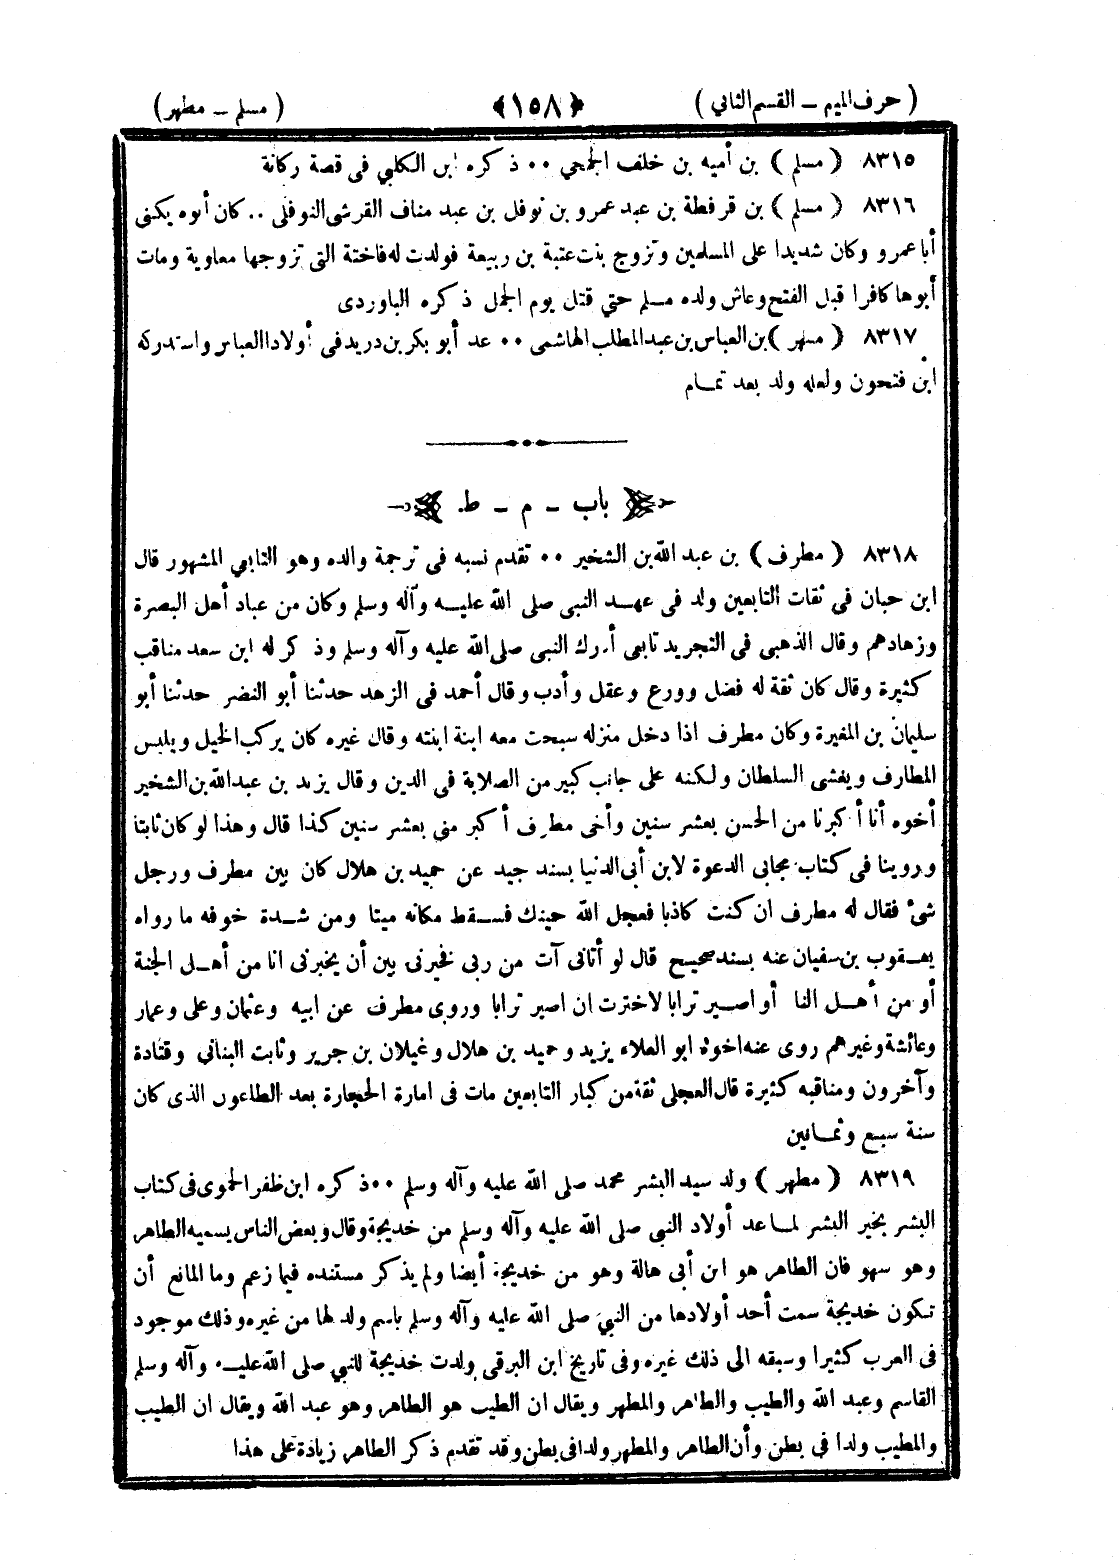 ( حرف الميم – القسم الثاني ) ﴿١٥٨﴾ ( مسلم – مطهر )
٨٣١٥ ( مسلم ) بن أميه بن خلف الجمحي ٠٠ ذكره ابن الكلبي فى قصة ركانة
٨٣١٦ ( مسلم ) بن قرفطة بن عبد عمرو بن نوفل بن عبد مناف القرشى النوفلى ٠٠ كان أبوه يكنى
أبا عمرو وكان شديدا على المسلمين وتزوج بنت عتبة بن ربيعة فولدت له فاختة التى تزوجها معاوية ومات
أبوها كافرا قبل الفتح وعاش ولده مسلم حتي قتل يوم الجمل ذكره الباوردى
٨٣١٧ ( مسهر ) بن العباس بن عبد المطلب الهاشمى ٠٠ عد أبو بكر بن دريد فى أولاد العباس واستدركه
ابن فتحون ولعله ولد بعد تمام
باب – م – ط
٨٣١٨ ( مطرف ) بن عبد الله بن الشخير ٠٠ تقدم نسبه فى ترجمة والده وهو التابعي المشهور قال
ابن حبان فى ثقات التابعين ولد فى عهد النبى صلى الله عليه وآله وسلم وكان من عباد أهل البصرة
وزهادهم وقال الذهبى فى التجريد تابعى أدرك النبى صلى الله عليه وآله وسلم وذكر له ابن سعد مناقب
كثيرة وقال كان ثقة له فضل وورع وعقل وأدب وقال أحمد فى الزهد حدثنا أبو النضر حدثنا أبو
سليمان بن المغيرة وكان مطرف اذا دخل منزله سبحت معه ابنة ابنته وقال غيره كان يركب الخيل ويلبس
المطارف ويغشى السلطان ولكنه على جانب كبير من الصلابة فى الدين وقال يزيد بن عبد الله بن الشخير
أخوه أنا أكبرنا من الحسن بعشر سنين وأخى مطرف أكبر منى بعشر سنين كذا قال وهذا لو كان ثابتا
وروينا فى كتاب مجابى الدعوة لابن أبى الدنيا بسند جيد عن حميد بن هلال كان بين مطرف ورجل
شئ فقال له مطرف ان كنت كاذبا فعجل الله حينك فسقط مكانه ميتا ومن شدة خوفه ما رواه
يعقوب بن سفيان عنه بسند صحيح قال لو أتانى آت من ربى فخيرنى بين أن يخبرنى انا من أهل الجنة
أو من أهل النا أو اصير ترابا لاخترت ان اصير ترابا وروى مطرف عن ابيه وعثمان وعلى وعمار
وعائشة وغيرهم روى عنه اخوه ابو العلاء يزيد وحميد بن هلال وغيلان بن جرير وثابت البنانى وقتادة
وآخرون ومناقبه كثيرة قال العجلى ثقة من كبار التابعين مات فى امارة الحجارة بعد الطاعون الذى كان
سنة سبع وثمانين
٨٣١٩ ( مطهر ) ولد سيد البشر محمد صلى الله عليه وآله وسلم ٠٠ ذكره ابن ظفر الحموى فى كتاب
البشر بخير البشر لما عد أولاد النبي صلى الله عليه وآله وسلم من خديجة وقال وبعض الناس يسميه الطاهر
وهو سهو فان الطاهر هو ابن أبى هالة وهو من خديجة أيضا ولم يذكر مستنده فيما زعم وما المانع أن
تكون خديجة سمت أحد أولادها من النبي صلى الله عليه وآله وسلم باسم ولد لها من غيره وذلك موجود
فى العرب كثيرا وسبقه الى ذلك غيره وفى تاريخ ابن البرقى ولدت خديجة للنبي صلى الله عليه وآله وسلم
القاسم وعبد الله والطيب والطاهر والمطهر ويقال ان الطيب هو الطاهر وهو عبد الله ويقال ان الطيب
والمطيب ولدا فى بطن وأن الطاهر والمطهر ولدا فى بطن وقد تقدم ذكر الطاهر زيادة على هذا